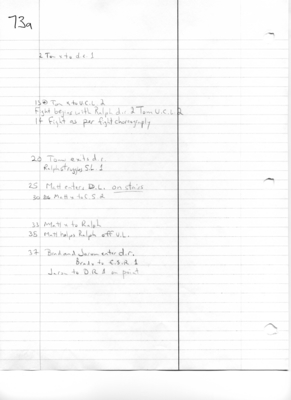 73a
2 Tom x to d.c. 1
13 Tom x to U.C.L. 2
fight begins with Ralph d.r 2 Tom U.C.L. 2
14 fight as per fight choreography
20 Tom exits d.r.
Ralph struggles S.L. 1
25 Matt enters D.L. on stairs
30 Matt x to S.S. 2
33 Matt x to Ralph
35 Matt helps Ralph off U.L.
37 Brad and Jaron enter d.r.
Brad to 1
Jaron to D.R 1 on point